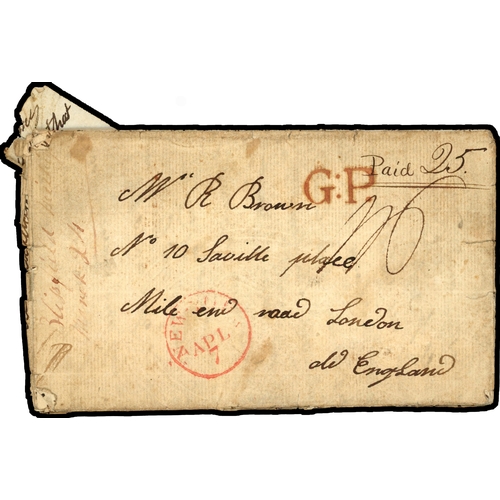 Paid 25.
G:P
Mr R Brown
No 10 Saville place
Mile end road London
old England
APL
7